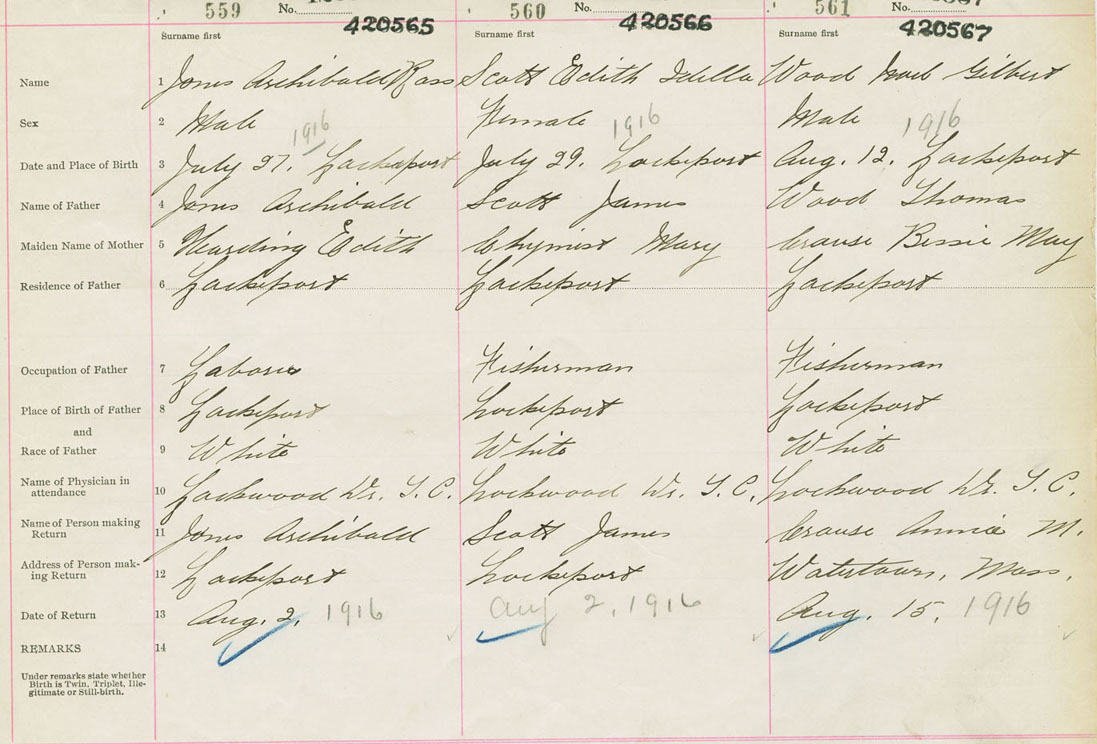 559 No. 420565 560 No. 420566 561 No. 420567
Surname first Surname first Surname first
Name 1 Jones Archibald Ross Scott Edith Idella Wood Noel Gilbert
Sex 2 Male Female Male
1916 1916 1916
Date and Place of Birth 3 July 27. Lockeport July 29. Lockeport Aug. 12. Lockeport
Name of Father 4 Jones Archibald Scott James Wood Thomas
Maiden Name of Mother 5 Harding Edith Chymist Mary Crouse Bessie May
Residence of Father 6 Lockeport Lockeport Lockeport
Occupation of Father 7 Laborer Fisherman Fisherman
Place of Birth of Father 8 Lockeport Lockeport Lockeport
and
Race of Father 9 White White White
Name of Physician in
attendance 10 Lockwood Dr. T. C. Lockwood Dr. T. C. Lockwood Dr. T. C.
Name of Person making
Return 11 Jones Archibald Scott James Crouse Annie M.
Address of Person mak-
ing Return 12 Lockeport Lockeport Watertown, Mass.
Date of Return 13 Aug. 2, 1916 Aug 2, 1916 Aug. 15, 1916
REMARKS 14
Under remarks state whether
Birth is Twin, Triplet, Ille-
gitimate or Still-birth.